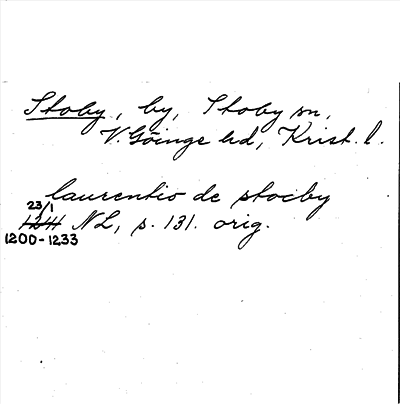 Stoby, by, Stoby sn,
V. Göinge hd, Krist. l.
laurentio de stocby
23/1
1241 NL, s. 131. orig.
1200-1233